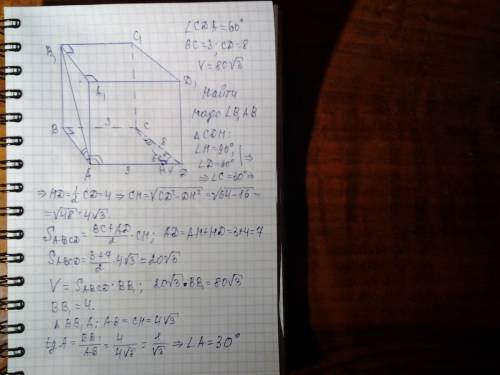 ∠CDA=60°
BC=3; CD=8
V=80√3
Найти
меру ∠B₁AB
△CDH:
∠H=90°,
∠D=60° ⇒
⇒ ∠C=30° ⇒
B₁ C₁
A₁ D₁
B 3 C 8
A 3 H 4 D
⇒ HD=½CD=4 ⇒ CH=√CD²-DH²=√64-16=
=√48=4√3.
S_ABCD=(BC+AD)/2·CH; AD=AH+HD=3+4=7
S_ABCD=(3+7)/2·4√3=20√3
V=S_ABCD·BB₁; 20√3·BB₁=80√3
BB₁=4.
△BB₁A; AB=CH=4√3
tgA=BB₁/AB=4/4√3=1/√3 ⇒ ∠A=30°